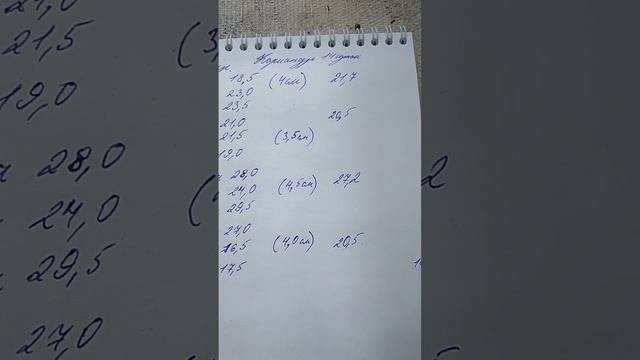 Кориандр 14 суток
18,5 (4см) 21,7
23,0
23,5
21,0 20,5
21,5 (3,5см)
19,0
28,0
24,0 (4,5см) 27,2
29,5
27,0
16,5 (4,0см) 20,5
17,5